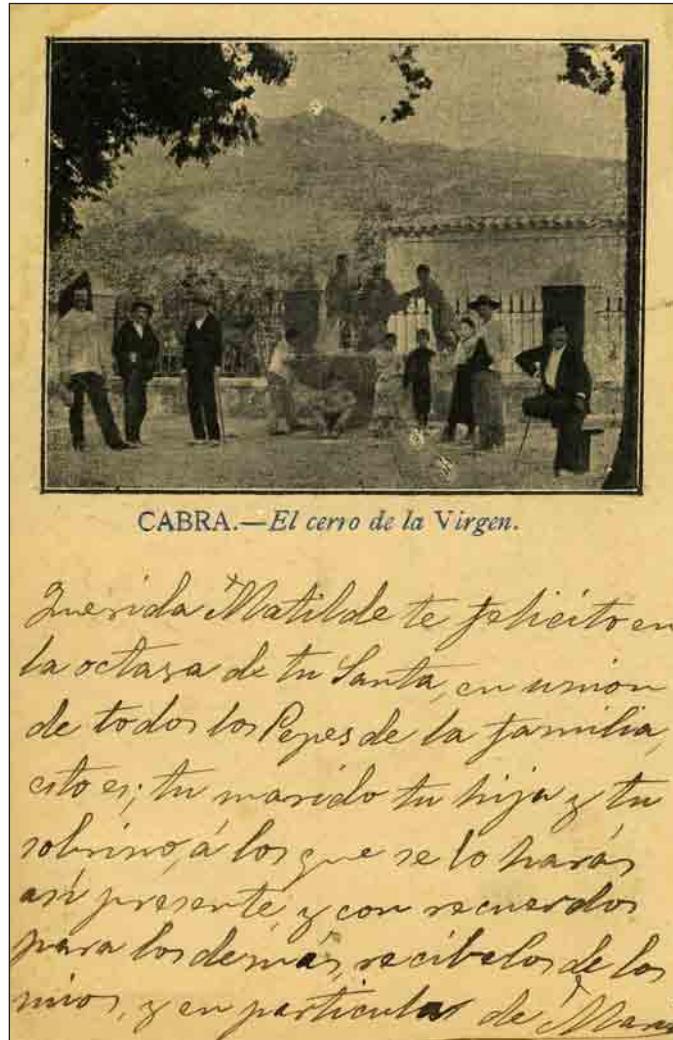 CABRA.—El cerro de la Virgen.
Querida Matilde te felicito en
la octava de tu Santa, en union
de todos los Pepes de la familia,
esto es; tu marido tu hija y tu
sobrino, á los que se lo harás
así presente, y con recuerdos
para los demás, recíbelos de los
mios, y en particular de